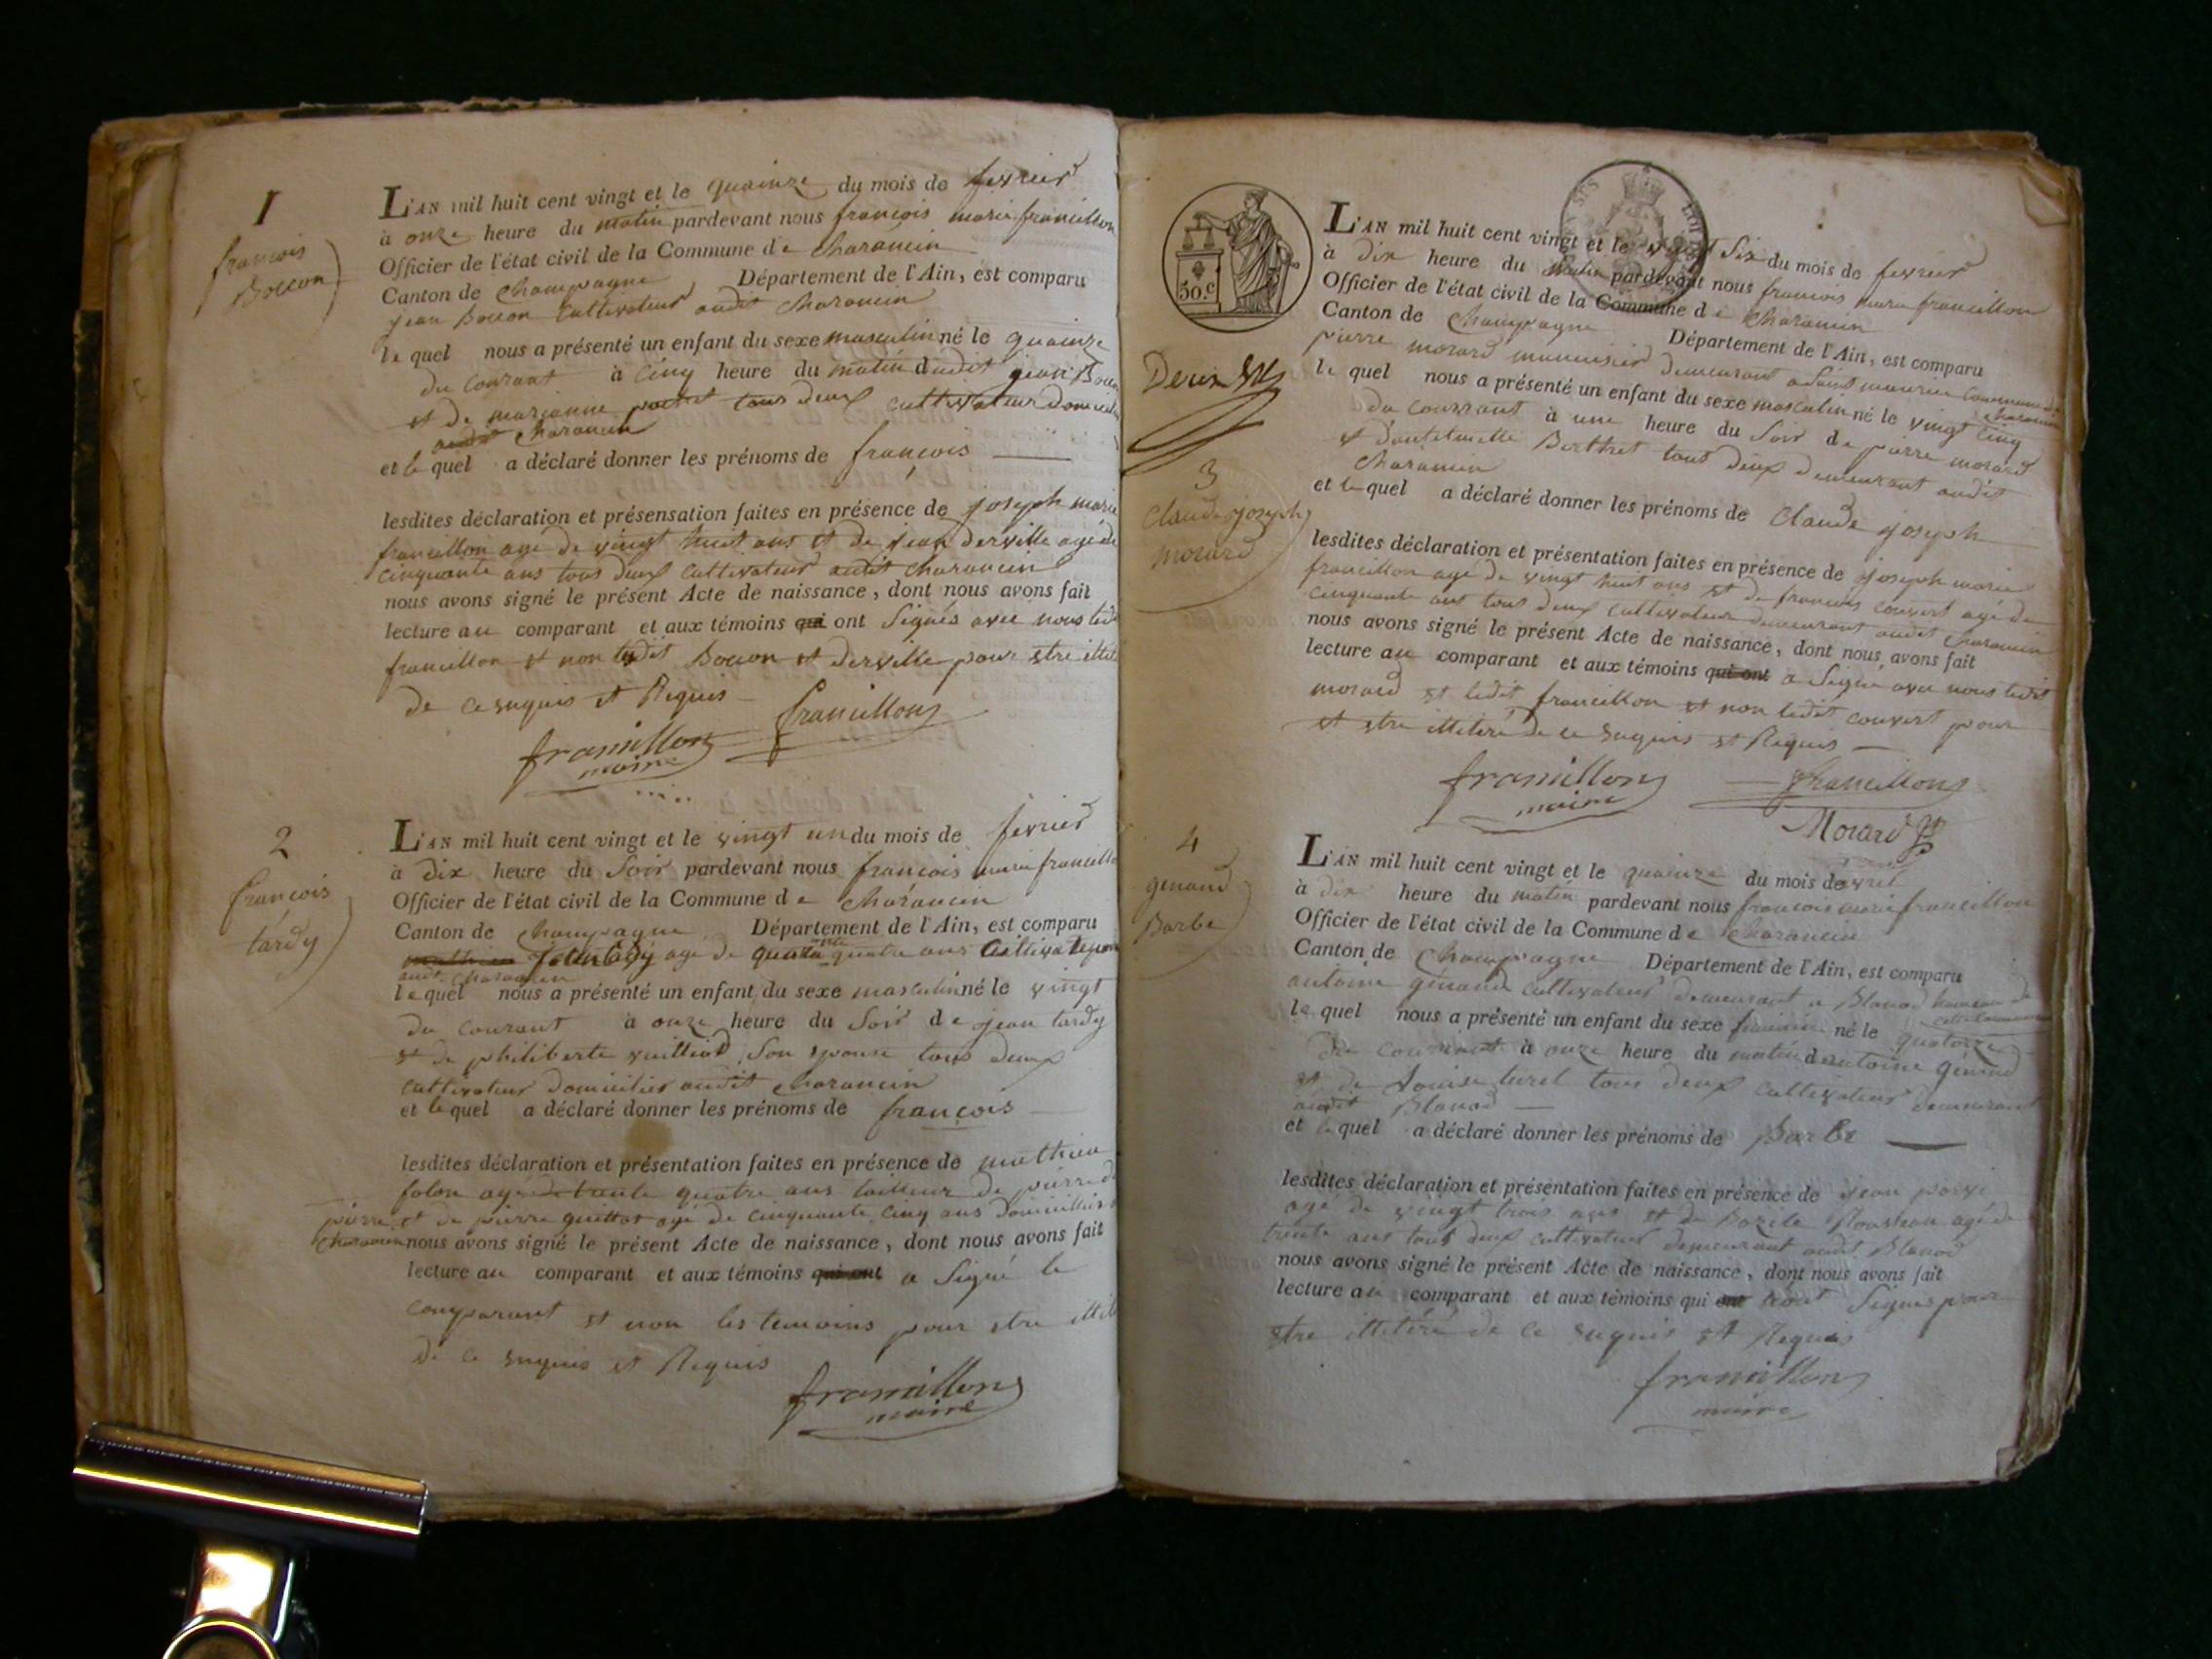 1
françois
Boccon
L'AN mil huit cent vingt et le quainze du mois de fevrier
à onze heure du matin pardevant nous françois marie francillon
Officier de l'état civil de la Commune de Charancin
Canton de Champagne Département de l'Ain, est comparu
jean Boccon Cultivateur audit Charancin
le quel nous a présenté un enfant du sexe masculin né le quainze
du Courant à cinq heure du matin dudit jean
et de marianne tous deux cultivateur
audit Charancin
et le quel a déclaré donner les prénoms de françois
lesdites déclaration et présensation faites en présence de joseph marie
francillon agé de vingt huit ans et de jean derville agé de
cinquante ans tous deux Cultivateur audit Charancin
nous avons signé le présent Acte de naissance, dont nous avons fait
lecture au comparant et aux témoins qui ont Signés avec nous ledt
francillon et non ledit Boccon et derville pour etre
de ce enquis et Requis
francillon francillon
maire
2
françois
tardy
L'AN mil huit cent vingt et le vingt un du mois de fevrier
à dix heure du Soir pardevant nous françois marie
Officier de l'état civil de la Commune de Charancin
Canton de Champagne Département de l'Ain, est comparu
agé de quarante quatre ans
audt Charancin
le quel nous a présenté un enfant du sexe masculin né le vingt
du courant à onze heure du Soir de jean tardy
et de philiberte vuilliod Son epouse tous deux
cultivateur domicilies audit Charancin
et le quel a déclaré donner les prénoms de françois
lesdites déclaration et présentation faites en présence de mathieu
folon agé de trente quatre ans tailleur de pierre
pierre et de pierre quittot agé de cinquante cinq ans domicilies
Charancin nous avons signé le présent Acte de naissance, dont nous avons fait
lecture au comparant et aux témoins qui ont a Signé le
comparant et non les temoins pour etre
de ce enquis et Requis
francillon
maire
50.c
Deux
3
Claude joseph
morard
L'AN mil huit cent vingt et le vingt Six du mois de fevrier
à dix heure du matin pardevant nous françois marie francillon
Officier de l'état civil de la Commune de Charancin
Canton de Champagne Département de l'Ain, est comparu
pierre morard menuisier demeurant a Saint maurice Commune de
Charancin
le quel nous a présenté un enfant du sexe masculin né le vingt cinq
du courrant à une heure du Soir de pierre morard
et Berthet tous deux demeurant audit
Charancin
et le quel a déclaré donner les prénoms de Claude joseph
lesdites déclaration et présentation faites en présence de joseph marie
francillon agé de vingt huit ans et de françois convert agé de
cinquante ans tous deux cultivateur demeurant audit Charancin
nous avons signé le présent Acte de naissance, dont nous avons fait
lecture au comparant et aux témoins qui ont a Signé avec nous ledit
morard et ledit francillon et non ledit convert pour
et etre illiteré de ce enquis et Requis
francillon francillon
maire
Morard
4
genand
Barbe
L'AN mil huit cent vingt et le quainze du mois de avril
à dix heure du matin pardevant nous françois marie francillon
Officier de l'état civil de la Commune de Charancin
Canton de Champagne Département de l'Ain, est comparu
antoine génand cultivateur demeurant a Blanod hameau de
cette commune
le quel nous a présenté un enfant du sexe feminin né le quatorze
du courrant à onze heure du matin dantoine génand
et de Louise turel tous deux cultivateur demeurant
audit Blanod
et le quel a déclaré donner les prénoms de Barbe
lesdites déclaration et présentation faites en présence de jean
agé de vingt trois ans et de Bazile Rousseau agé de
trente ans tous deux cultivateur demeurant audit Blanod
nous avons signé le présent Acte de naissance, dont nous avons fait
lecture au comparant et aux témoins qui ont nont Signés pour
etre illiteré de ce enquis et Requis
francillon
maire